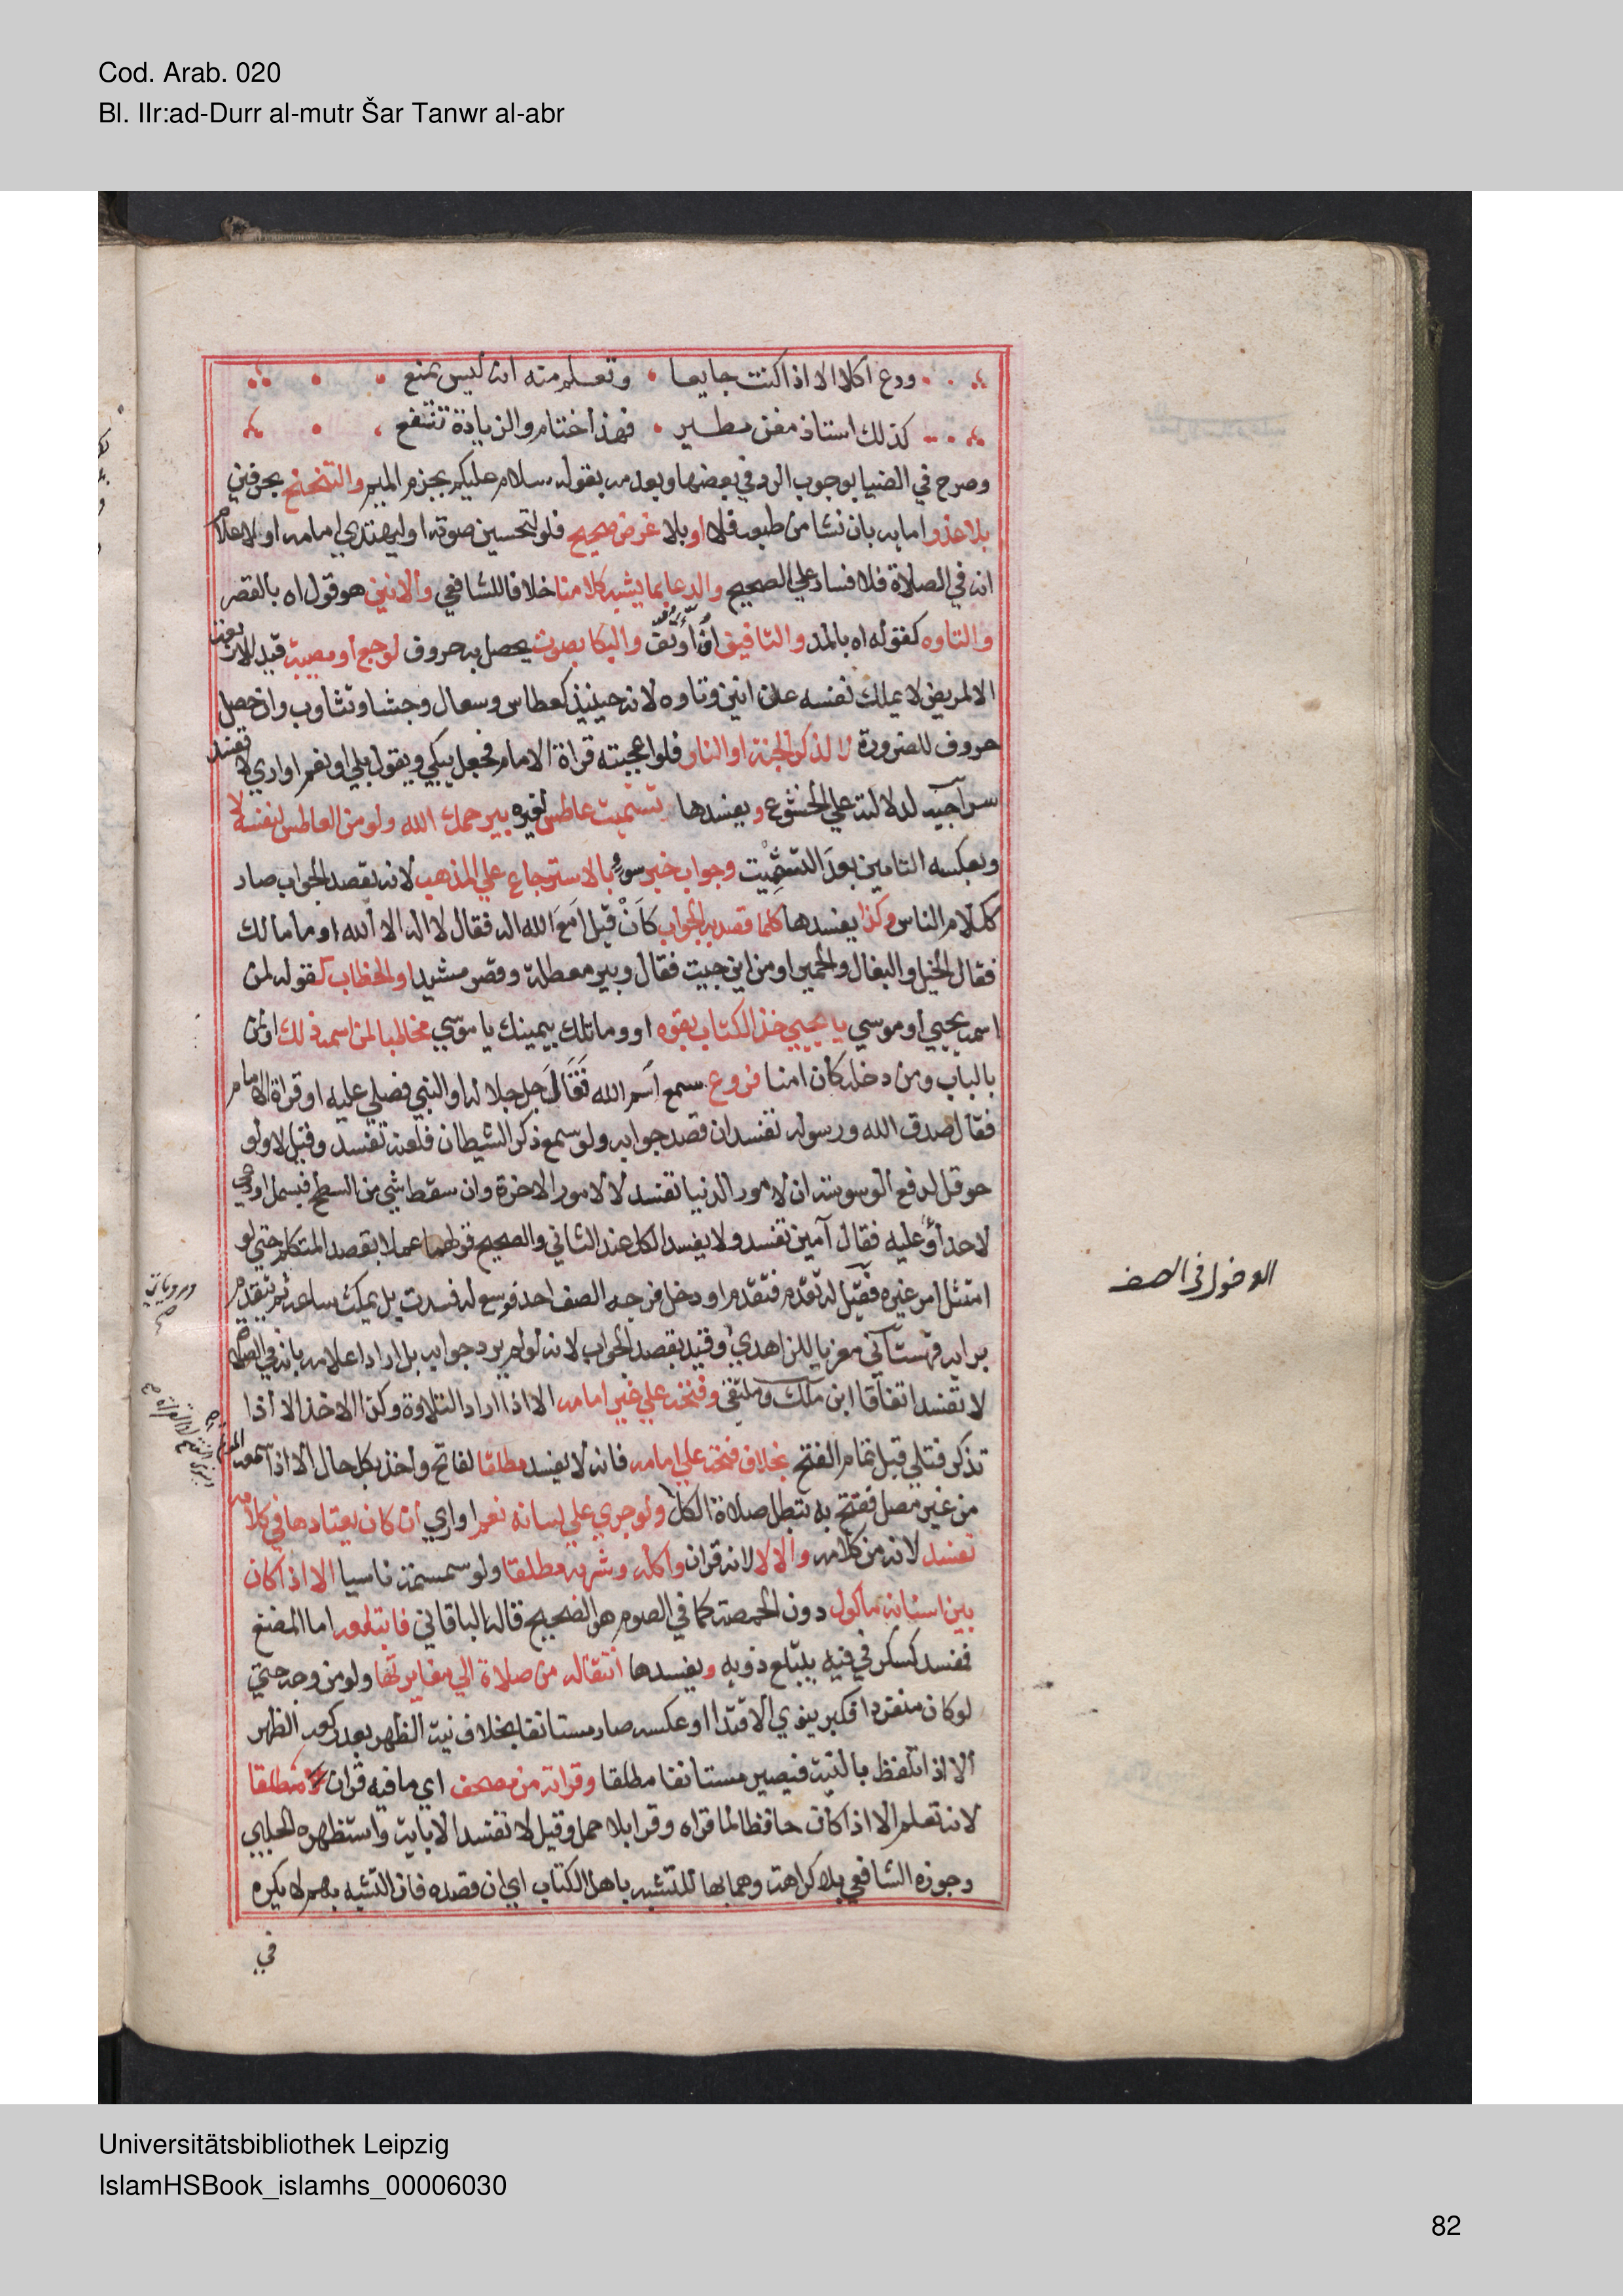 Cod. Arab. 020
Bl. IIr:ad-Durr al-mutr Šar Tanwr al-abr
ودع اكلا الا اذا كنت جايعا وتعلم منه انه ليس يمنع
كذلك استاذ مغن مطير فهذا ختام والزيادة تنفع
وصرح في الضيا بوجوب الرد في بعضها وبعدمه بقوله سلام عليكم بجزم الميم والتنحنح بحرفين
بلا عذر اما به بان نشا من طبعه فلا او بلا غرض صحيح فلو لتحسين صوته او ليهتدي امامه او لاعلام
انه في الصلاة فلا فساد علي الصحيح والدعا بما يشبه كلامنا خلافا للشافعي والانين هو قول اه بالقصر
والتاوه كقوله اه بالمد والتافيف اف او تف والبكا بصوت يحصل به حروف لوجع او مصيبة قيد للاربعة
الا لمريض لا يملك نفسه عن انين وتاوه لانه حينيذ كعطاس وسعال وجشا وتثاوب وان حصل
حروف للضرورة لا لذكر الجنة او النار فلو اعجبته قراة الامام فجعل يبكي ويقول بلي او نعم او اري لا تفسد
سراجيه لدلالته علي الخشوع ويفسدها تشميت عاطس لغيره بيرحمك الله ولو من العاطس لنفسه لا
وبعكسه التامين بعد التشميت وجواب خبر سوء بالاسترجاع علي المذهب لانه بقصد الجواب صار
ككلام الناس وكذا يفسدها كلما قصد به الجواب كان قيل امع الله اله فقال لا اله الا الله او ما مالك
فقال الخيل والبغال والحمير او من اين جيت فقال وبير معطلة وقصر مشيد او الخطاب كقوله لمن
اسمه يحيي او موسي يا يحيي خذ الكتاب بقوه او وما تلك بيمينك يا موسي مخاطبا لمن اسمه ذلك او لمن
بالباب ومن دخله كان امنا فروع سمع اسم الله فقال جل جلاله او النبي فصلي عليه او قراة الامام
فقال صدق الله ورسوله تفسد ان قصد جوابه ولو سمع ذكر الشيطان فلعنه تفسد وقيل لا ولو
حوقل لدفع الوسوسة ان لامور الدنيا تفسد لا لامور الاخرة وان سقط شي من السطح فبسمل او دعي
لاحد او عليه فقال آمين تفسد ولا يفسد الكل عند الثاني والصحيح قولهما عملا بقصد المتكلم حتي لو
امتثل امر غيره فقيل له تقدم فتقدم او دخل فرجه الصف احد فوسع له فسدت بل يمكث ساعة ثم يتقدم
برايه قهستاني معزيا للزاهدي وقيد بقصد الجواب لانه لو لم يرد جوابه بل اراد اعلامه بانه في الصلاة
لا تفسد اتفاقا ابن ملك وملتقي وفتحه علي غير امامه الا اذا اراد التلاوة وكذا الاخذ الا اذا
تذكر فتلي قبل تمام الفتح بخلاف فتحه علي امامه فانه لا يفسد مطلقا لفاتح واخذ بكل حال الا اذا سمعه المؤتم
من غير مصل ففتح به تبطل صلاة الكل ولو جري علي لسانه نعم او اري ان كان يعتادها في كلامه
تفسد لانه من كلامه والا لا لانه قران واكله وشربه مطلقا ولو سمسمة ناسيا الا اذا كان
بين اسنانه ماكول دون الحمصة كما في الصوم هو الصحيح قاله الباقاني فابتلعه اما المضغ
ففسد كسكر في فيه يبتلع ذوبه ويفسدها انتقاله من صلاة الي مغايرتها ولو من وجه حتي
لو كان منفردا فكبر ينوي الاقتدا او عكسه صار مستانفا بخلاف نية الظهر بعد ركعة الظهر
الا اذا تلفظ بالنية فيصير مستانفا مطلقا وقراته من مصحف اي ما فيه قران مطلقا
لانه تعلم الا اذا كان حافظا لما قراه وقرا بلا حمل وقيل لا تفسد الا باية واستظهره الحلبي
وجوزه الشافعي بلا كراهة وهما بها للتشبه باهل الكتاب اي ان قصده فان التشبه بهم لا يكره
في
الدخول في الصف
Universitätsbibliothek Leipzig
IslamHSBook_islamhs_00006030
82